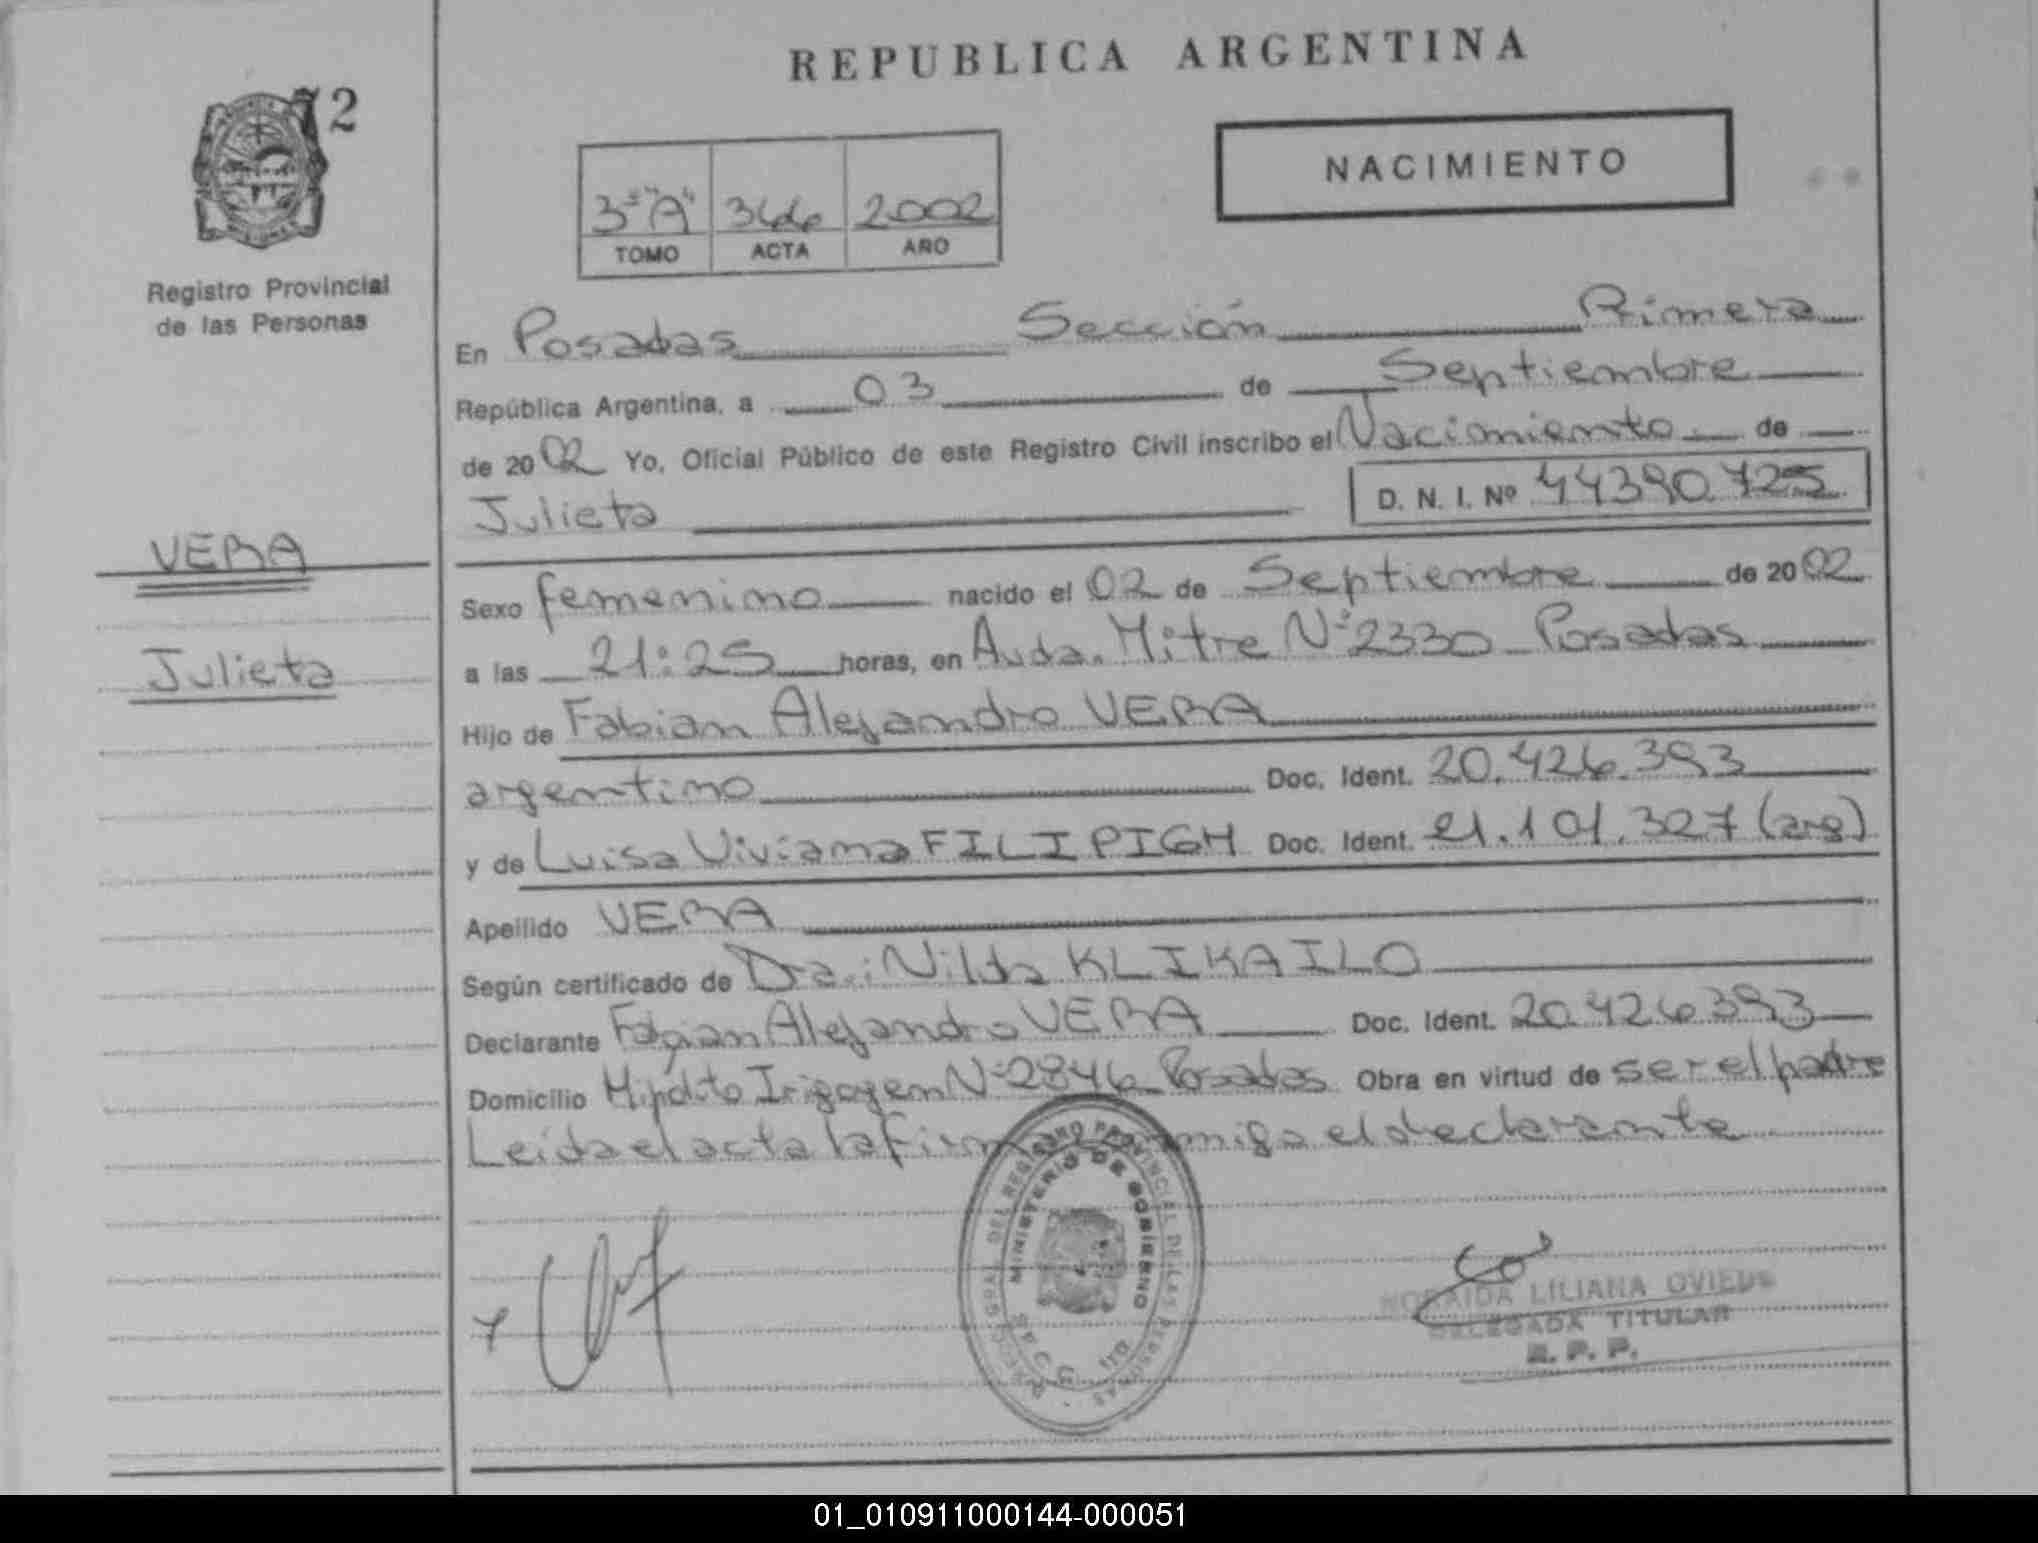 REPUBLICA ARGENTINA
72
NACIMIENTO
3º "A" 366 2002
TOMO ACTA AÑO
Registro Provincial
de las Personas
En Posadas Sección Primera
República Argentina, a 03 de Septiembre
de 2002 Yo, Oficial Público de este Registro Civil inscribo el Nacimiento de
Julieta D. N. I. Nº 44390.725
VERA
Julieta
Sexo femenino nacido el 02 de Septiembre de 2002
a las 21:25 horas, en Avda. Mitre Nº 2330 Posadas
Hijo de Fabian Alejandro VERA
argentino Doc. Ident. 20.426.393
y de Luisa Viviana FILIPIGH Doc. Ident. 21.101.327 (arg)
Apellido VERA
Según certificado de Dra.: Nilda KLIKAILO
Declarante Fabian Alejandro VERA Doc. Ident. 20.426393
Domicilio Hipólito Irigoyen Nº 2846 Posadas Obra en virtud de ser el padre
Leída el acta la firma conmigo el declarante
REGISTRO PROVINCIAL DE LAS PERSONAS
MINISTERIO DE GOBIERNO
LILIANA OVIEDO
DELEGADA TITULAR
R. P. P.
01_010911000144-000051